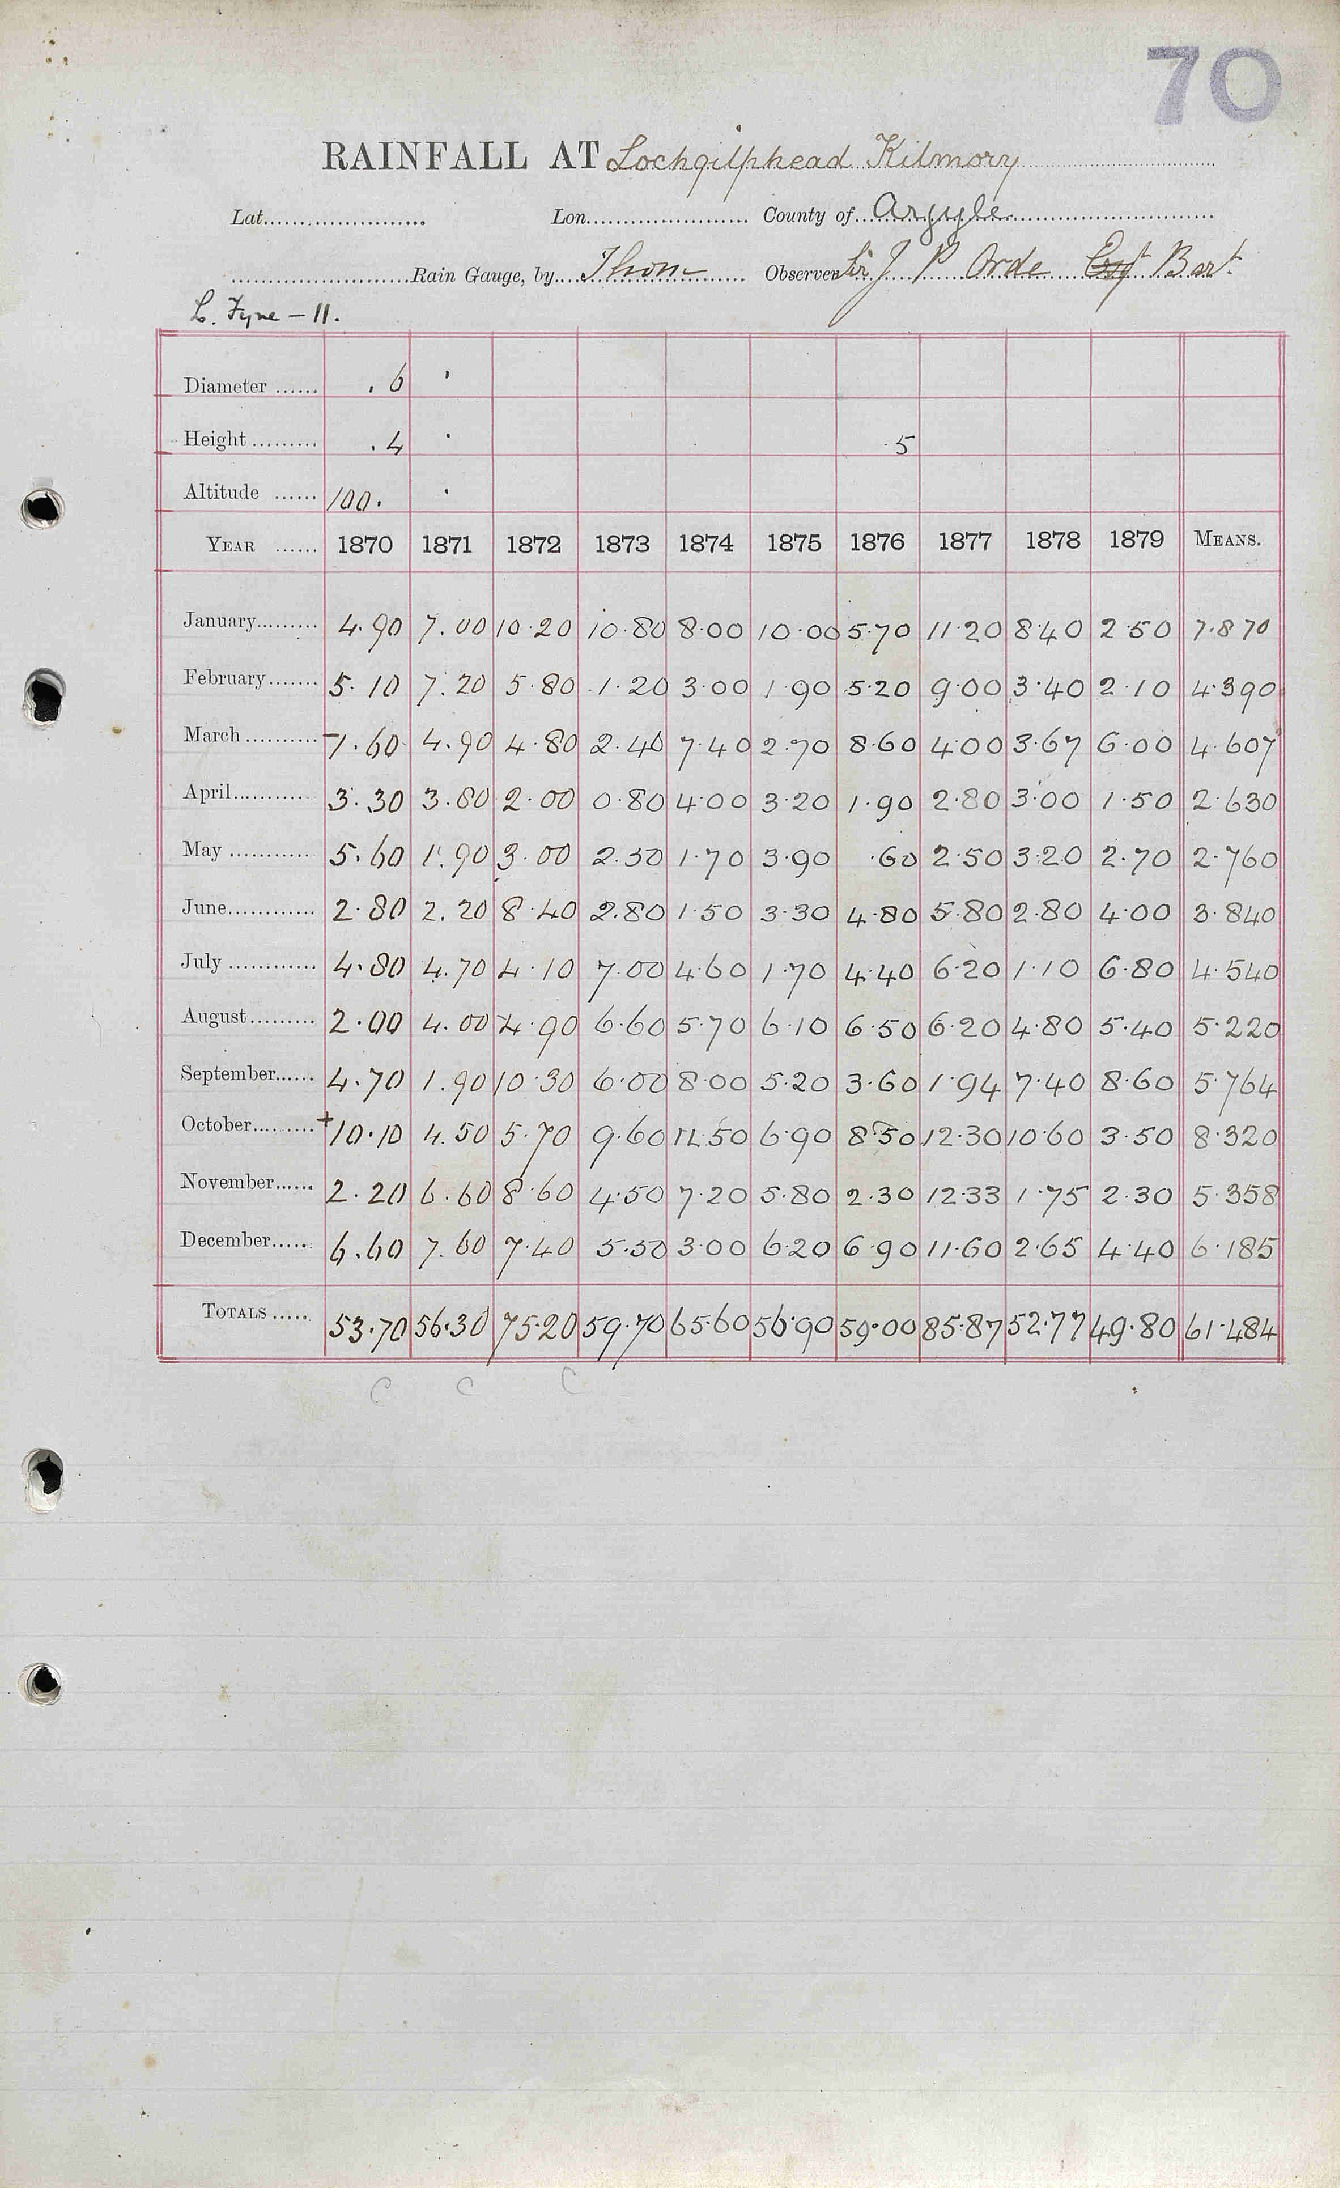 70
RAINFALL AT Lochgilphead Kilmory
Lat...................... Lon...................... County of Argyle
......................Rain Gauge, by Thom Observer Sir J P Orde Esqr Bart
L. Fyne - 11.
Diameter ...... .6 '
Height ......... .4 · 5
Altitude ...... 100. ·
YEAR ...... 1870 1871 1872 1873 1874 1875 1876 1877 1878 1879 MEANS.
January......... 4.90 7.00 10.20 10.80 8.00 10.00 5.70 11.20 8.40 2.50 7.870
February....... 5.10 7.20 5.80 1.20 3.00 1.90 5.20 9.00 3.40 2.10 4.390
March .......... -1.60 4.90 4.80 2.40 7.40 2.70 8.60 4.00 3.67 6.00 4.607
April........... 3.30 3.80 2.00 0.80 4.00 3.20 1.90 2.80 3.00 1.50 2.630
May ............ 5.60 1.90 3.00 2.50 1.70 3.90 .60 2.50 3.20 2.70 2.760
June............ 2.80 2.20 8.40 2.80 1.50 3.30 4.80 5.80 2.80 4.00 3.840
July ............ 4.80 4.70 4.10 7.00 4.60 1.70 4.40 6.20 1.10 6.80 4.540
August......... 2.00 4.00 4.90 6.60 5.70 6.10 6.50 6.20 4.80 5.40 5.220
September...... 4.70 1.90 10.30 6.00 8.00 5.20 3.60 1.94 7.40 8.60 5.764
October......... +10.10 4.50 5.70 9.60 11.50 6.90 8.50 12.30 10.60 3.50 8.320
November...... 2.20 6.60 8.60 4.50 7.20 5.80 2.30 12.33 1.75 2.30 5.358
December...... 6.60 7.60 7.40 5.50 3.00 6.20 6.90 11.60 2.65 4.40 6.185
TOTALS ..... 53.70 56.30 75.20 59.70 65.60 56.90 59.00 85.87 52.77 49.80 61.484
C C C